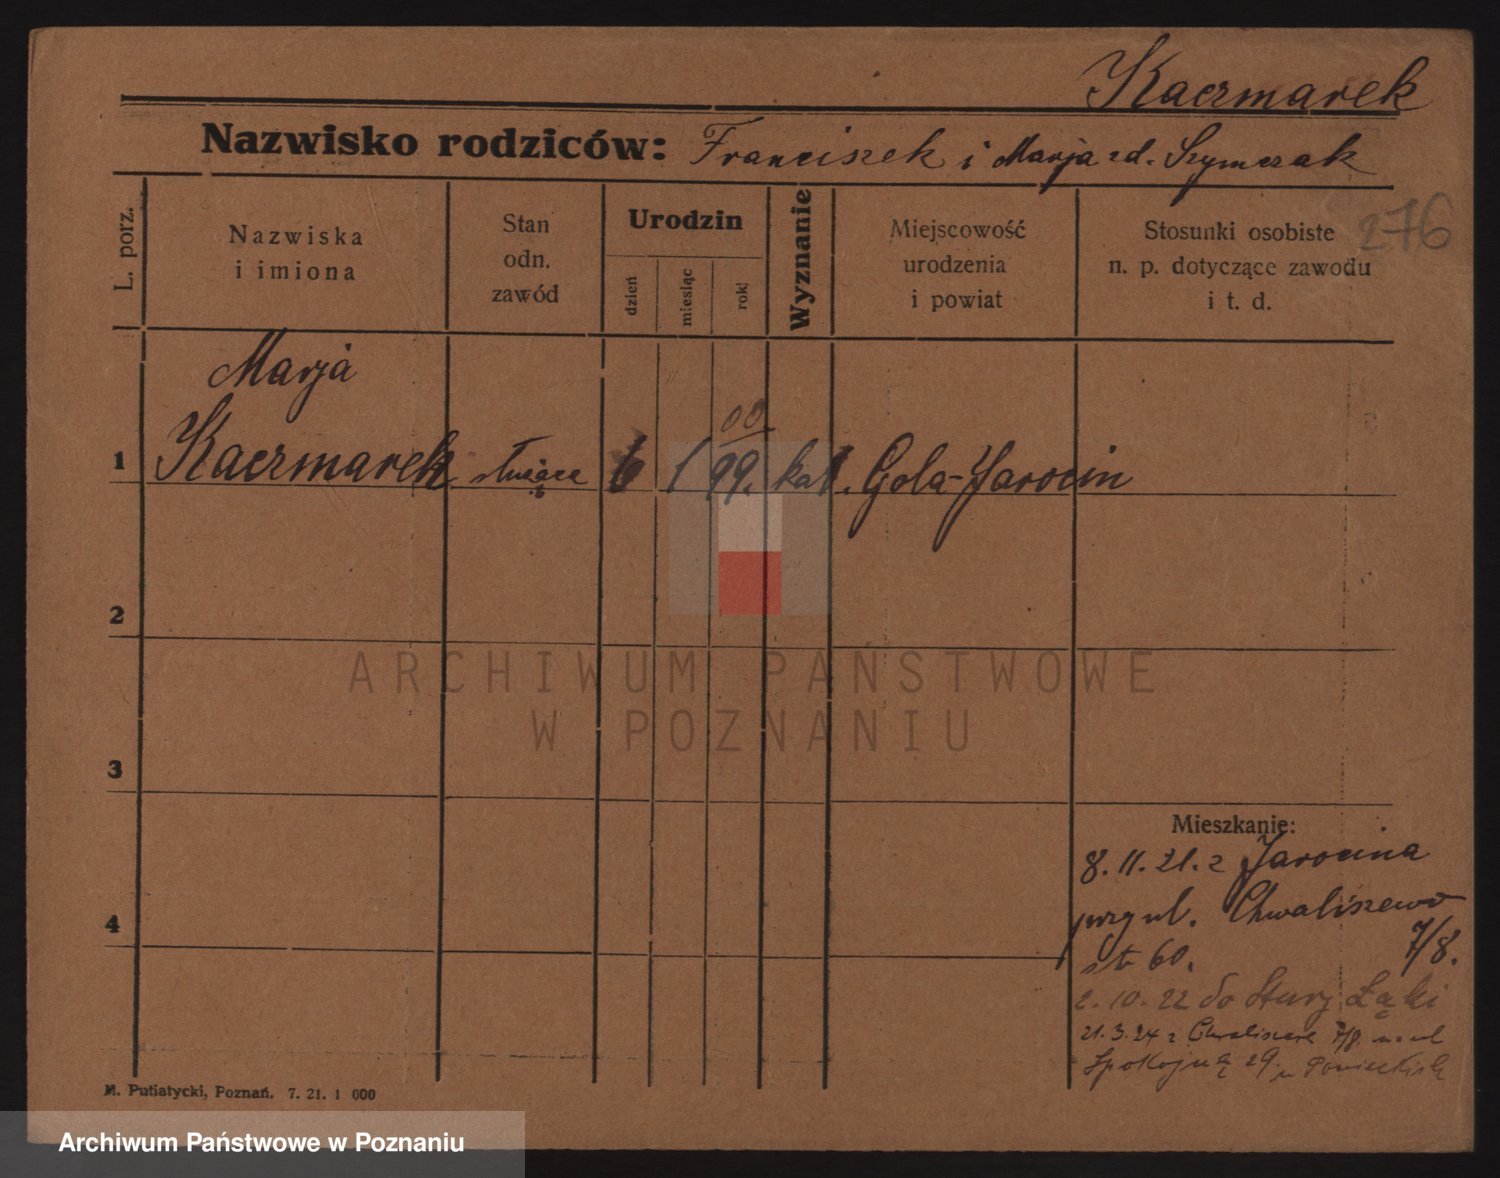 Kaczmarek
Nazwisko rodziców: Franciszek i Marja zd. Szymczak
276
L. porz.
Nazwiska
i imiona
Stan
odn.
zawód
Urodzin
dzień
miesiąc
rok
Wyznanie
Miejscowość
urodzenia
i powiat
Stosunki osobiste
n. p. dotyczące zawodu
i t. d.
Marja
00
1 Kaczmarek służąca 6 1 99. kat. Gola-Jarocin
2
ARCHIWUM PAŃSTWOWE
W POZNANIU
3
Mieszkanie:
8. 11. 21. z Jarocina
przy ul. Chwaliszewo
4
7/8.
str 60.
2. 10. 22 do Łąki
21. 3. 24 z Chwaliszewa 7/8.
Spokojną 29
M. Putiatycki, Poznań. 7. 21. 1 000
Archiwum Państwowe w Poznaniu